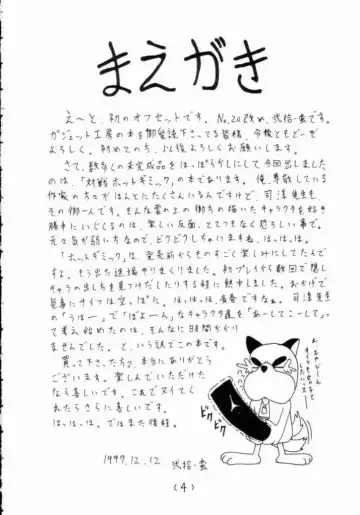 まえがき
え〜と、初のオフセットです。No.20改め、弐拾・蛮です。
ガジェット工房の本を御愛読下さってる皆様、今後ともどーぞ
よろしく。初めての方、以後よろしくお願いします。
さて、数多くの未完成品をほっぽらかしにして今回出しました
のは、「対戦ホットギミック」の本であります。俺、尊敬している
作家の方々がほんとにたくさんいるんですけど、司淳先生も
その御一人です。そんな雲の上の御方の描いたキャラクタを好き
勝手にいじくるのは、楽しい反面、とてつもなく恐ろしい事で。
元々気が弱い方なので、ビクビクしちゃいますね。はっはっは。
「ホットギミック」は、発売前からものすごく楽しみにしてたんで
すよ。もう出た途端やりまくりました。初プレイから数回で隠し
キャラの出し方を見つけだしたりする程に熱中しました。おかげで
見事にサイフは空っぽだ。はっはっは、青春ですなぁ。司淳先生
の「うはー」で「ぽよーん」なキャラクタ達を「あーしてこーして」っ
て考え始めたのは、そんなに時間かかり
ませんでした。と、いう訳でこの本です。
買って下さった方々、本当にありがとう
ございます。楽しんでいただけた
なら嬉しいです。これでヌイてく
れたらさらに喜しいです。
はっはっは。ではまた後程。
1997.12.12 弐拾・蛮
ビクビク
(4)